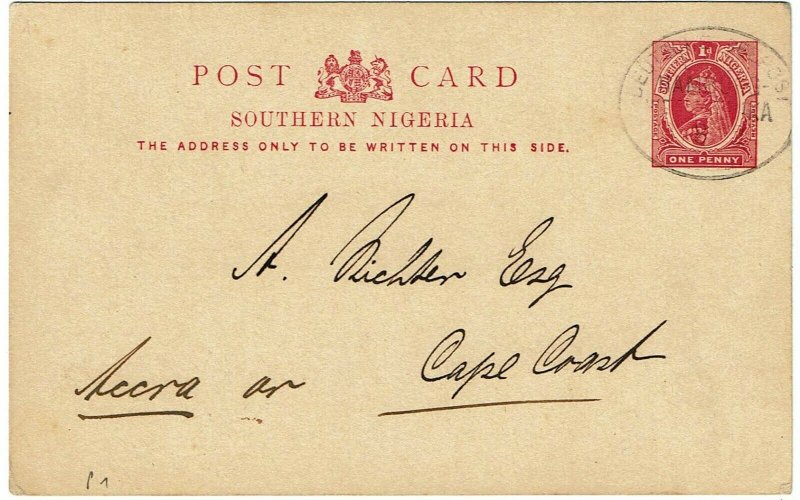 POST CARD
SOUTHERN NIGERIA
THE ADDRESS ONLY TO BE WRITTEN ON THIS SIDE.
1d
SOUTHERN NIGERIA
POSTAGE REVENUE
ONE PENNY
A. Richter Esq
Cape Coast
Accra or